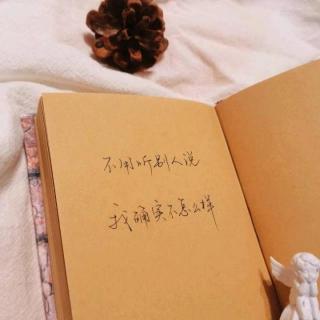 不用听别人说
我确实不怎么样